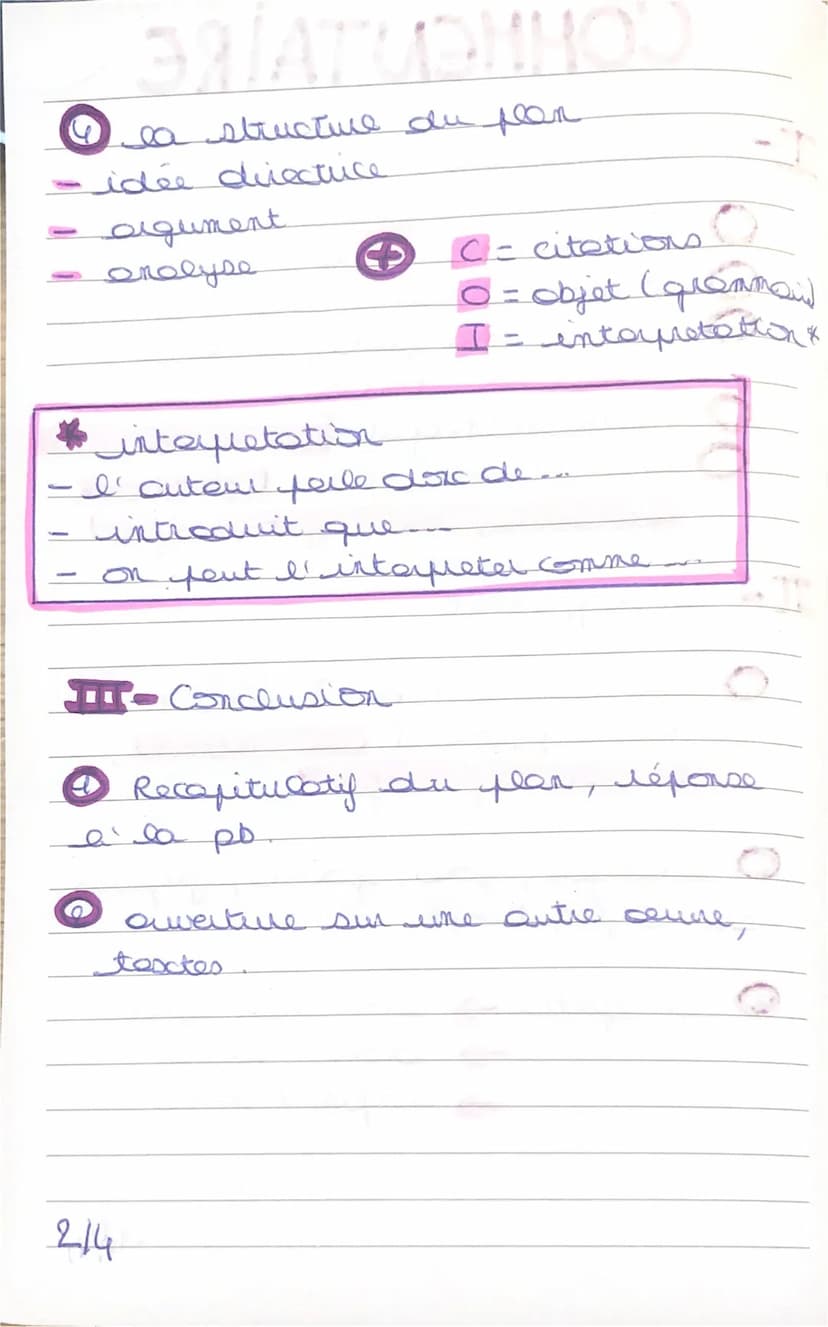 COMMENTAIRE
④ la structure du plan
- idée directrice
- argument
- analyse
+ C = citations
O = objet (grammai)
I = interpretation*
* interpretation
- l'auteur parle donc de...
- introduit que...
- on peut l'interpreter comme ...
III- Conclusion
① Recapitulatif du plan, réponse
à la pb.
② ouverture sur une autre oeuvre,
textes.
2/4